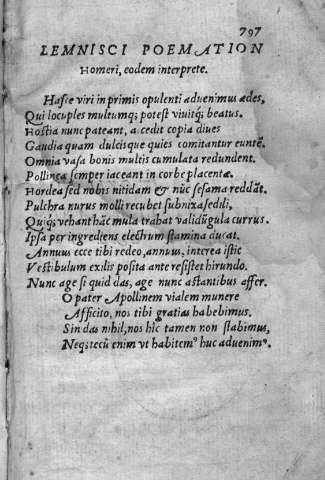 797
LEMNISCI POEMATION
Homeri, eodem interprete.
Hasce viri inprimis opulenti aduenimus ædes,
Qui locuples multumq; potest viuitq́; beatus.
Hostia nunc pateant, accedit copia diues
Gaudia quam dulcisque quies comitantur euntē.
Omnia vasa bonis multis cumulata redundent.
Pollinea semper iaceant in corbe placentæ.
Hordea sed nobis nitidam & nūc sesama reddāt.
Pulchra nurus molli recubet subnixa sedili,
Quiq́; vehant hāc mula trahat validūgula currus.
Ipsa per ingrediens electrum stamina ducat.
Annuus ecce tibi redeo, annuus, interea istic
Vestibulum exilis posita ante resistet hirundo.
Nunc age si quid das, age nunc astantibus affer.
O pater Apollinem vialem munere
Afficito, nos tibi gratias habebimus.
Sin das nihil, nos hic tamen non stabimus,
Neq; tecū enim vt habitemꝰ huc aduenimꝰ.